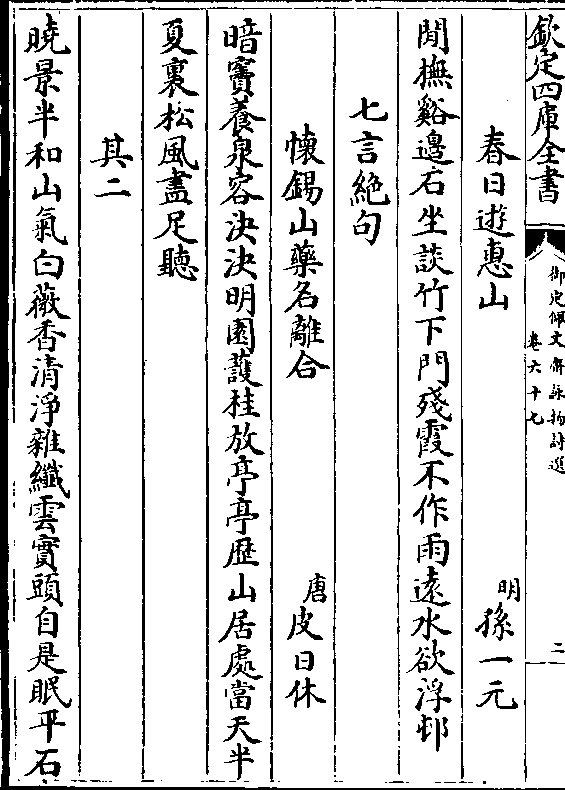 欽定四庫全書
御定佩文齋詠物詩選
卷六十七
二
春日遊惠山
明
孫一元
閒撫谿邊石坐談竹下門殘霞不作雨遠水欲浮邨
七言絶句
懷錫山藥名離合
唐
皮日休
暗竇養泉容決決明園護桂放亭亭歷山居處當天半
夏裏松風盡足聽
其二
曉景半和山氣白薇香清淨雜纖雲實頭自是眠平石